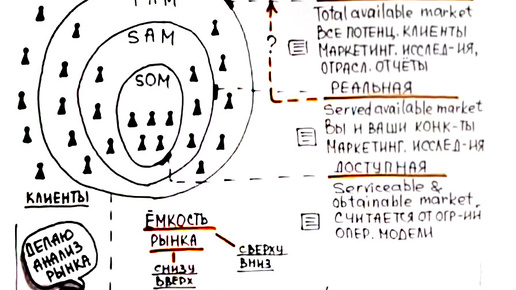 SAM
SOM
КЛИЕНТЫ
ДЕЛАЮ
АНАЛИЗ
РЫНКА
ЁМКОСТЬ
РЫНКА
СНИЗУ
ВВЕРХ
СВЕРХУ
ВНИЗ
?
Total available market
ВСЕ ПОТЕНЦ. КЛИЕНТЫ
МАРКЕТИНГ. ИССЛЕД-ИЯ,
ОТРАСЛ. ОТЧЁТЫ
РЕАЛЬНАЯ
Served available market
ВЫ И ВАШИ КОНК-ТЫ
МАРКЕТИНГ. ИССЛЕД-ИЯ
ДОСТУПНАЯ
Serviceable &
obtainable market,
СЧИТАЕТСЯ ОТ ОГР-ИЙ
ОПЕР. МОДЕЛИ